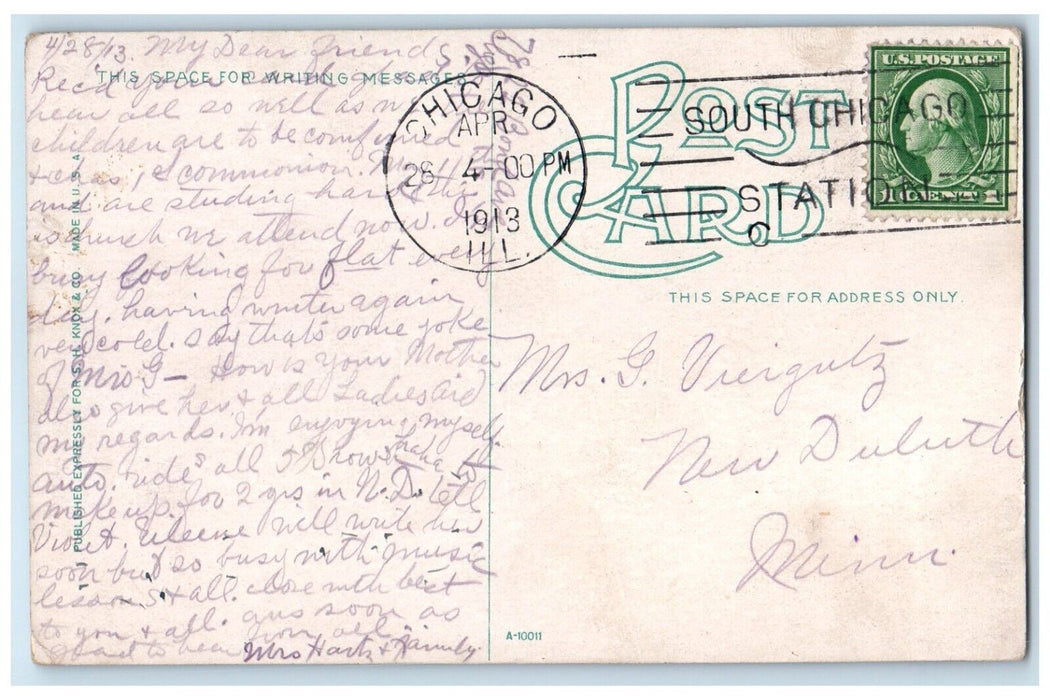 4/28/13. My Dear friends.
THIS SPACE FOR WRITING MESSAGES
Rec'd your card glad to
hear all so well as we
children are to be confirmed
1st communion.
and are studing hard this
is church we attend now.
busy looking for flat every
day. having winter again
very cold. Say that's some joke
of Mrs G— How is your Mother
also give her & all Ladies Aid
my regards. I'm enjoying myself
auto. rides all & Shows
make up for 2 yrs in N.D. tell
Violet. Eileene will write her
soon but so busy with music
lessons & all. close with best
to you & all. soon as
glad to hear you all.
Mrs & Family.
PUBLISHED EXPRESSLY FOR S.H. KNOX & CO. MADE IN U.S.A.
CHICAGO
APR
28 4-00 PM
1913
ILL.
POST
CARD
SOUTH CHICAGO
STATION
C
U.S. POSTAGE
1 CENT 1
THIS SPACE FOR ADDRESS ONLY.
Mrs. G. Viergutz
New Duluth
Minn.
A-10011